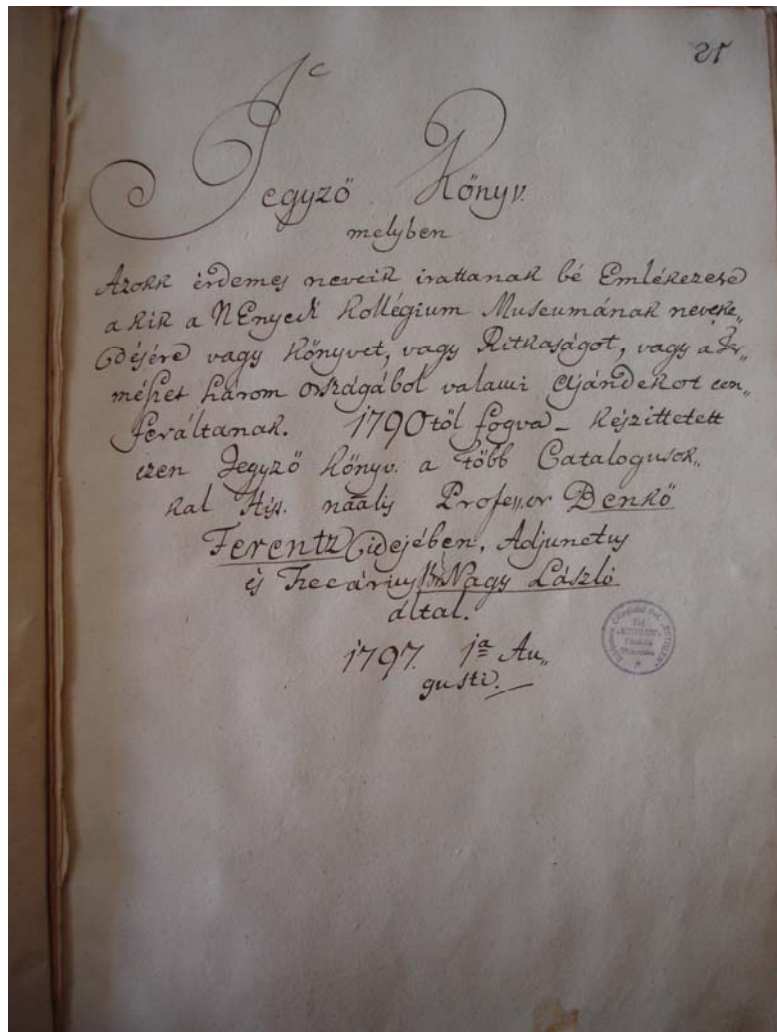 51
Jegyző Könyv.
melyben
Azokk érdemes neveik irattanak bé Emlékezere
a kik a NEnyedi Kollégium Museumának neveke„
déjére vagy Könyvet, vagy Ritkaságot, vagy a Ter„
méſzet három országából valami ajándekot con„
feráltanak. 1790től fogva _ Kéſzittetett
ezen Jegyző Könyv. a több Catalogusok„
kal Hiſt. naālis Profeſſor Benkő
Ferentz idejében, Adjunctus
és Thecárius Nagy László
által.
1797. 1ª Au„
gusti.